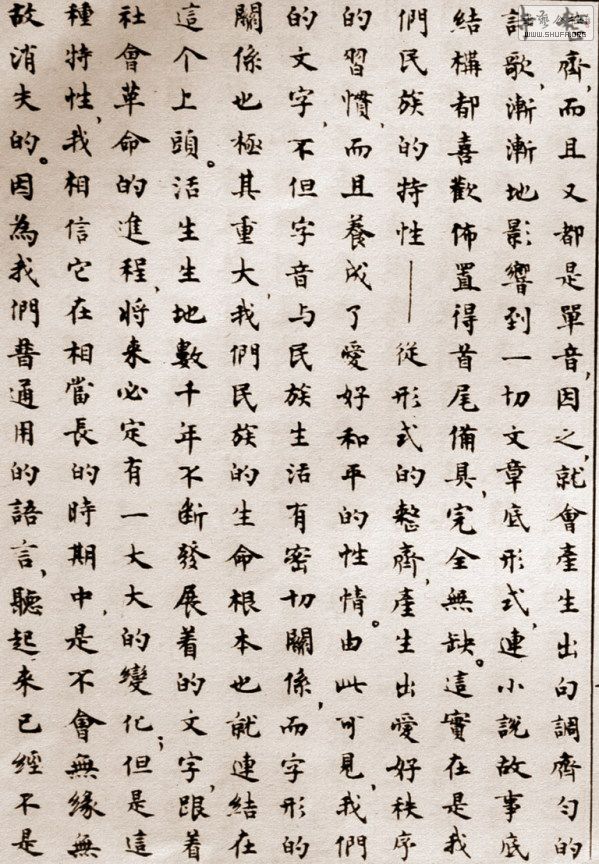 齊,而且又都是單音,因之,就會產生出句調齊勻的
詩歌,漸漸地影響到一切文章底形式,連小說故事底
結構都喜歡佈置得首尾備具,完全無缺。這實在是我
們民族的特性——從形式的整齊,產生出愛好秩序
的習慣,而且養成了愛好和平的性情。由此可見,我們
的文字,不但字音与民族生活有密切關係,而字形的
關係也極其重大,我們民族的生命根本也就連結在
這个上頭。活生生地數千年不断發展着的文字,跟着
社會革命的進程,將來必定有一大大的變化;但是這
種特性,我相信它在相當長的時期中,是不會無緣無
故消失的。因為我們普通用的語言,聽起來已經不是
WWW.SHUFA.ORG